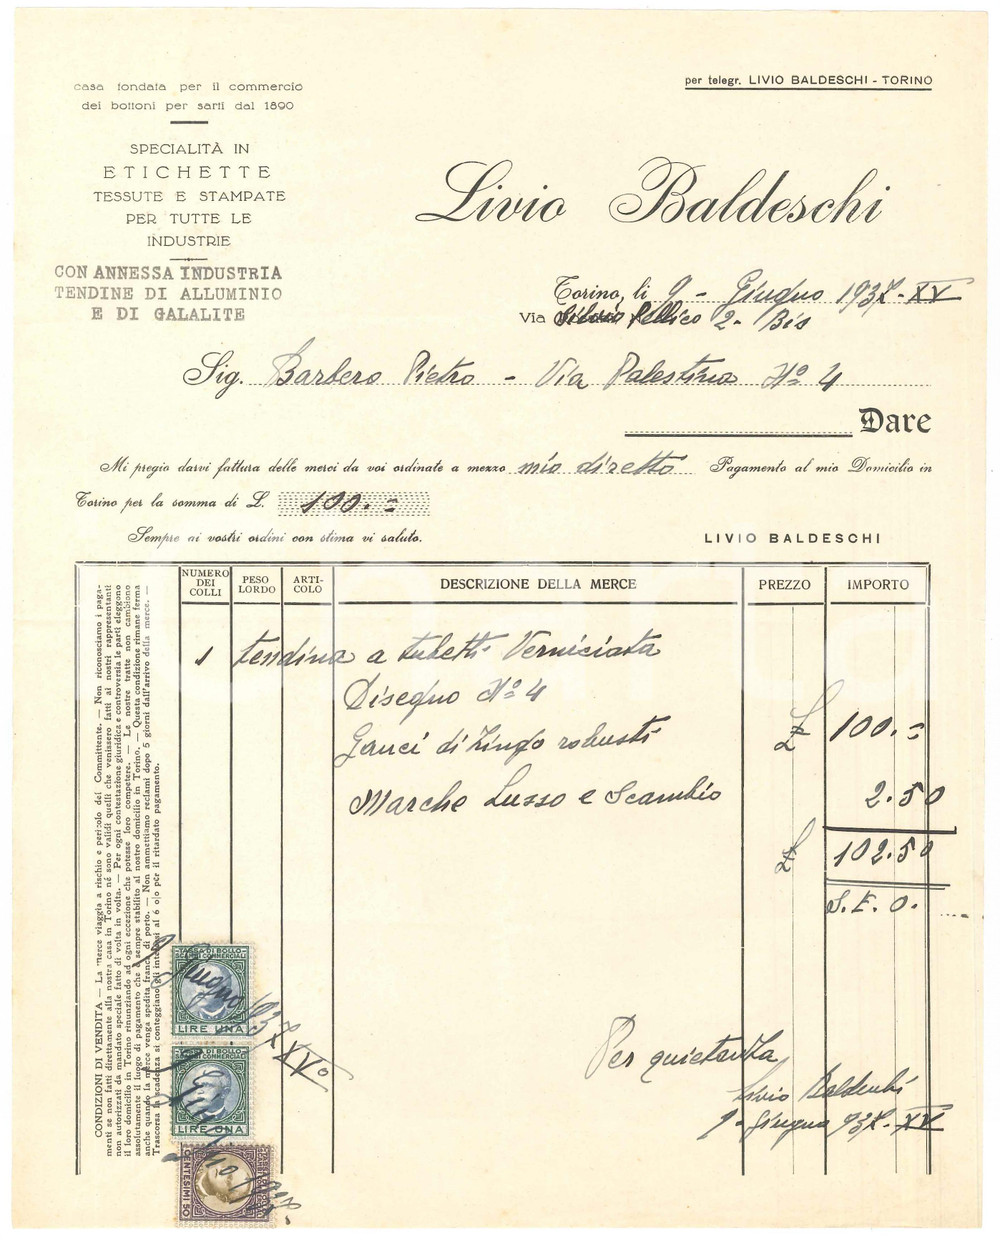 casa fondata per il commercio
dei bottoni per sarti dal 1890
SPECIALITÀ IN
ETICHETTE
TESSUTE E STAMPATE
PER TUTTE LE
INDUSTRIE
CON ANNESSA INDUSTRIA
TENDINE DI ALLUMINIO
E DI GALALITE
per telegr. LIVIO BALDESCHI - TORINO
Livio Baldeschi
Torino, li 9 - Giugno 1937-XV
Via Silvio Pellico 2- Bis
Sig. Barbero Pietro - Via Palestina Nº 4
Dare
Mi pregio darvi fattura delle merci da voi ordinate a mezzo mio diretto Pagamento al mio Domicilio in
Torino per la somma di L. 100.=
Sempre ai vostri ordini con stima vi saluto.
LIVIO BALDESCHI
NUMERO DEI COLLI
PESO LORDO
ARTI-COLO
DESCRIZIONE DELLA MERCE
PREZZO
IMPORTO
1 tendina a tubetti Verniciata
Disegno Nº 4
Ganci di Zingo robusti £ 100.=
Marche Lusso e Scambio 2.50
£ 102.50
S.E.O.
Per quietanza
Livio Baldeschi
9- Giugno 937-XV
CONDIZIONI DI VENDITA — La merce viaggia a rischio e pericolo del Committente. — Non riconosciamo i paga-
menti se non fatti direttamente alla nostra casa in Torino né sono validi quelli che venissero fatti ai nostri rappresentanti
non autorizzati da mandato speciale fatto di volta in volta. — Per ogni contestazione giuridica e controversia le parti eleggono
il loro domicilio in Torino rinunziando ad ogni eccezione che potesse loro competere. — Le nostre tratte non cambiono
assolutamente il luogo di pagamento che è sempre stabilito al nostro domicilio in Torino. — Questa condizione rimane ferma
anche quando la merce venga spedita franca di porto. — Non ammettiamo reclami dopo 5 giorni dall'arrivo della merce. —
Trascorsa la scadenza si conteggiano gli interessi al 6 o/o per il ritardato pagamento.
TASSA DI BOLLO
SCAMBI COMMERCIALI
LIRE UNA
TASSA DI BOLLO
SCAMBI COMMERCIALI
LIRE UNA
CENTESIMI 50
9 Giugno 1937 XVº